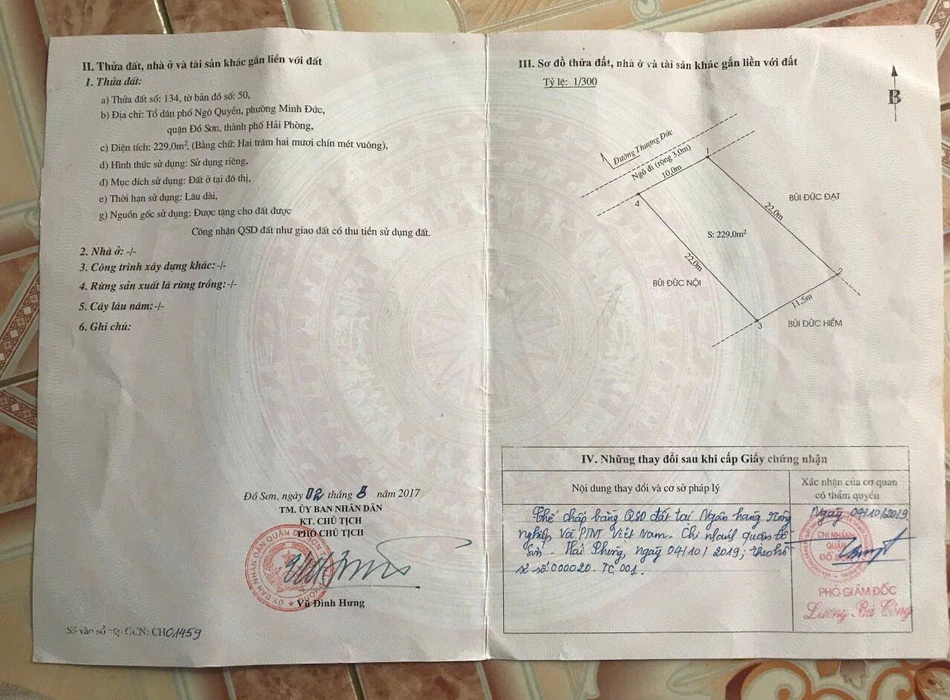 II. Thửa đất, nhà ở và tài sản khác gắn liền với đất
1. Thửa đất:
a) Thửa đất số: 134, tờ bản đồ số: 50,
b) Địa chỉ: Tổ dân phố Ngô Quyền, phường Minh Đức,
quận Đồ Sơn, thành phố Hải Phòng,
c) Diện tích: 229,0m², (Bằng chữ: Hai trăm hai mươi chín mét vuông),
d) Hình thức sử dụng: Sử dụng riêng,
đ) Mục đích sử dụng: Đất ở tại đô thị,
e) Thời hạn sử dụng: Lâu dài,
g) Nguồn gốc sử dụng: Được tặng cho đất được
Công nhận QSD đất như giao đất có thu tiền sử dụng đất.
2. Nhà ở: -/-
3. Công trình xây dựng khác:-/-
4. Rừng sản xuất là rừng trồng:-/-
5. Cây lâu năm:-/-
6. Ghi chú:
Đồ Sơn, ngày 02 tháng 8 năm 2017
TM. ỦY BAN NHÂN DÂN
KT. CHỦ TỊCH
PHÓ CHỦ TỊCH
Vũ Đình Hưng
Số vào sổ cấp GCN: CH01459
III. Sơ đồ thửa đất, nhà ở và tài sản khác gắn liền với đất
Tỷ lệ: 1/300
B
Đường Thượng Đức
Ngõ đi (rộng 3,0m)
10,0m
1
4
22,0m
BÙI ĐỨC ĐẠT
S: 229,0m²
22,0m
BÙI ĐỨC NỘI
2
11,5m
3
BÙI ĐỨC HIỂM
IV. Những thay đổi sau khi cấp Giấy chứng nhận
Nội dung thay đổi và cơ sở pháp lý
Xác nhận của cơ quan
có thẩm quyền
Thế chấp bằng QSD đất tại Ngân hàng Nông
nghiệp và PTNT Việt Nam. Chi nhánh quận Đồ
Sơn - Hải Phòng, ngày 04/10/2019, theo hồ
sơ số: 000020. TC 001.
Ngày 04/10/2019
CHI NHÁNH
QUẬN
ĐỒ SƠN
PHÓ GIÁM ĐỐC
Lương Bá Công